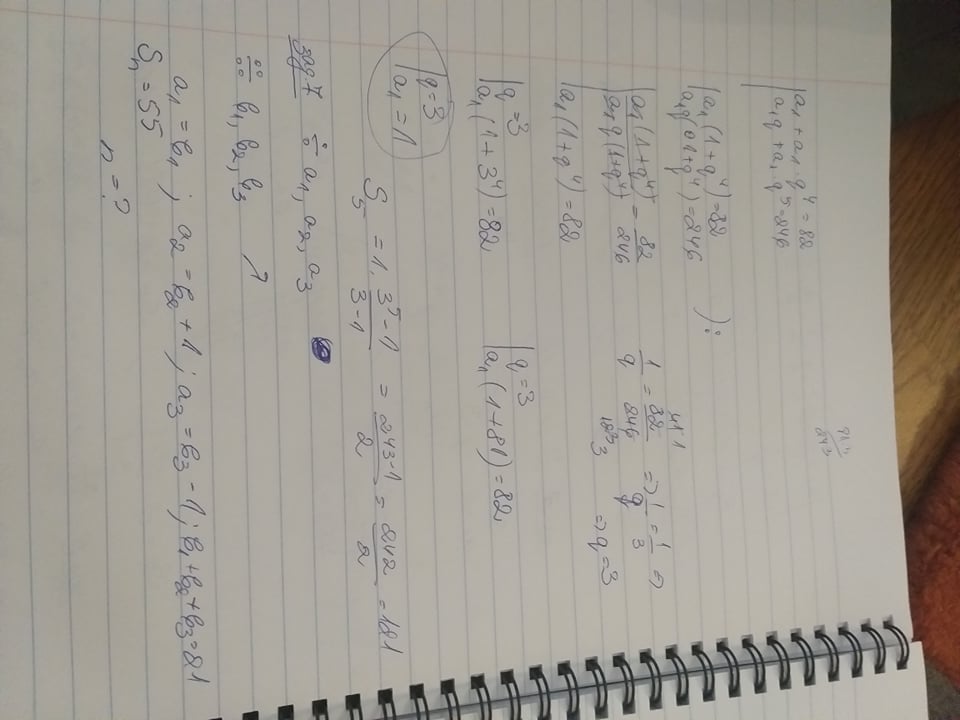 a₁ + a₁ · q⁴ = 82
a₁q + a₁ · q⁵ = 246
a₁(1 + q⁴) = 82
a₁q(1 + q⁴) = 246 ) :
a₁(1 + q⁴) / a₁q(1 + q⁴) = 82/246
1/q = 82/246 => 1/q = 1/3 =>
=> q = 3
a₁(1 + q⁴) = 82
q = 3
a₁(1 + 3⁴) = 82
q = 3
a₁(1 + 81) = 82
q = 3
a₁ = 1
S₅ = 1 · (3⁵ - 1)/(3 - 1) = (243 - 1)/2 = 242/2 = 121
зад 7 ÷ a₁, a₂, a₃
b₁, b₂, b₃ ↗
a₁ = b₁ ; a₂ = b₂ + 1 ; a₃ = b₃ - 1 ; b₁ + b₂ + b₃ = 21
Sₙ = 55
n = ?